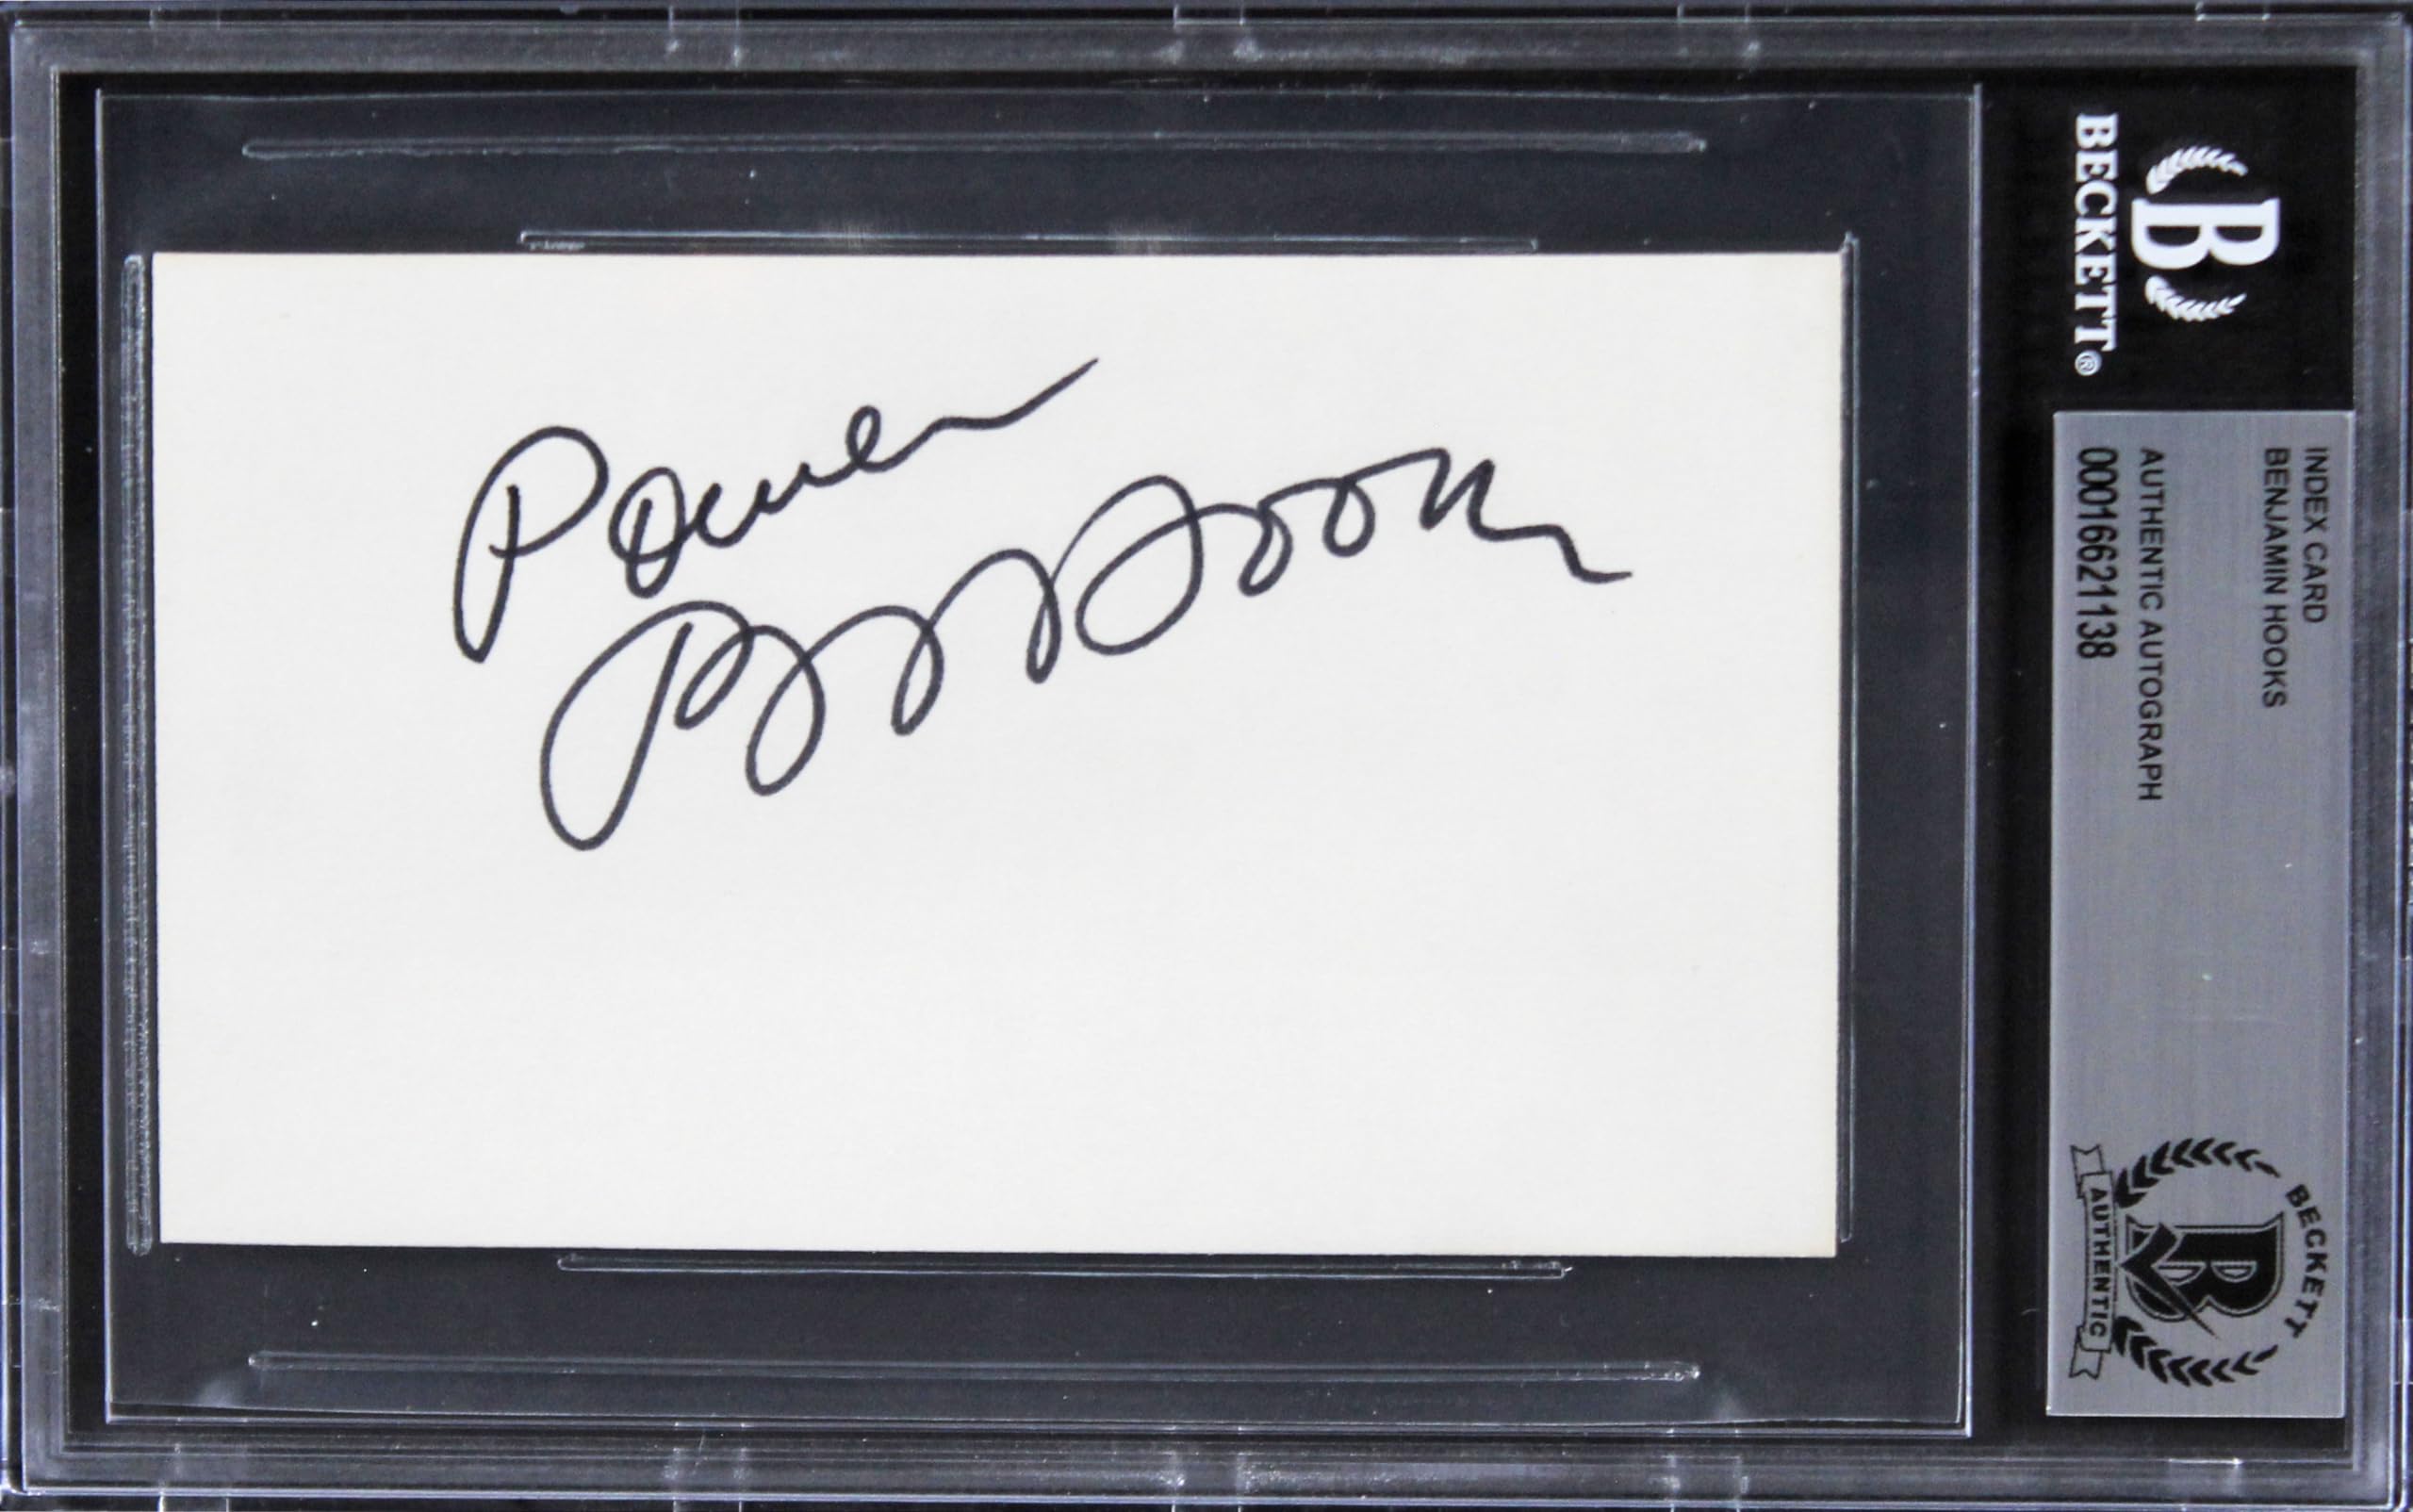 Power
B Hooks
BECKETT®
B
INDEX CARD
BENJAMIN HOOKS
AUTHENTIC AUTOGRAPH
00016621138
BECKETT
B
AUTHENTIC